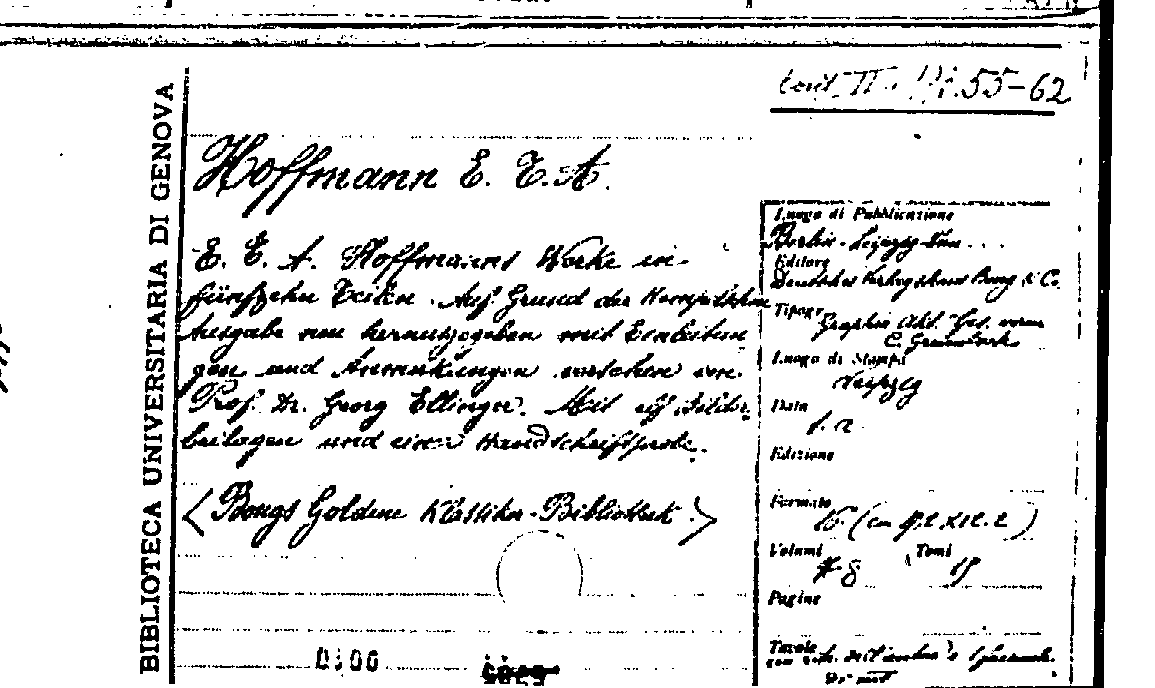 55-62
BIBLIOTECA UNIVERSITARIA DI GENOVA
Hoffmann E. T. A.
E. T. A. Hoffmanns Werke in
fünfzehn Teilen. Auf Grund der Hempelschen
Ausgabe neu herausgegeben mit Einleitun
gen und Anmerkungen versehen von
Prof. Dr. Georg Ellinger. Mit elf Bilder
beilagen und einer Handschriftprobe.
<Bongs Goldene Klassiker-Bibliothek>
Luogo di Pubblicazione
Berlin - Leipzig - Wien...
Editore
Deutsches Verlagshaus Bong & Co.
Tipogr.
Graphic Akt. Ges. vorm
Luogo di Stampa
Leipzig
Data
s. a.
Edizione
Formato
16° (cm
Volumi
8
Tomi
15
Pagine
Tavole
con